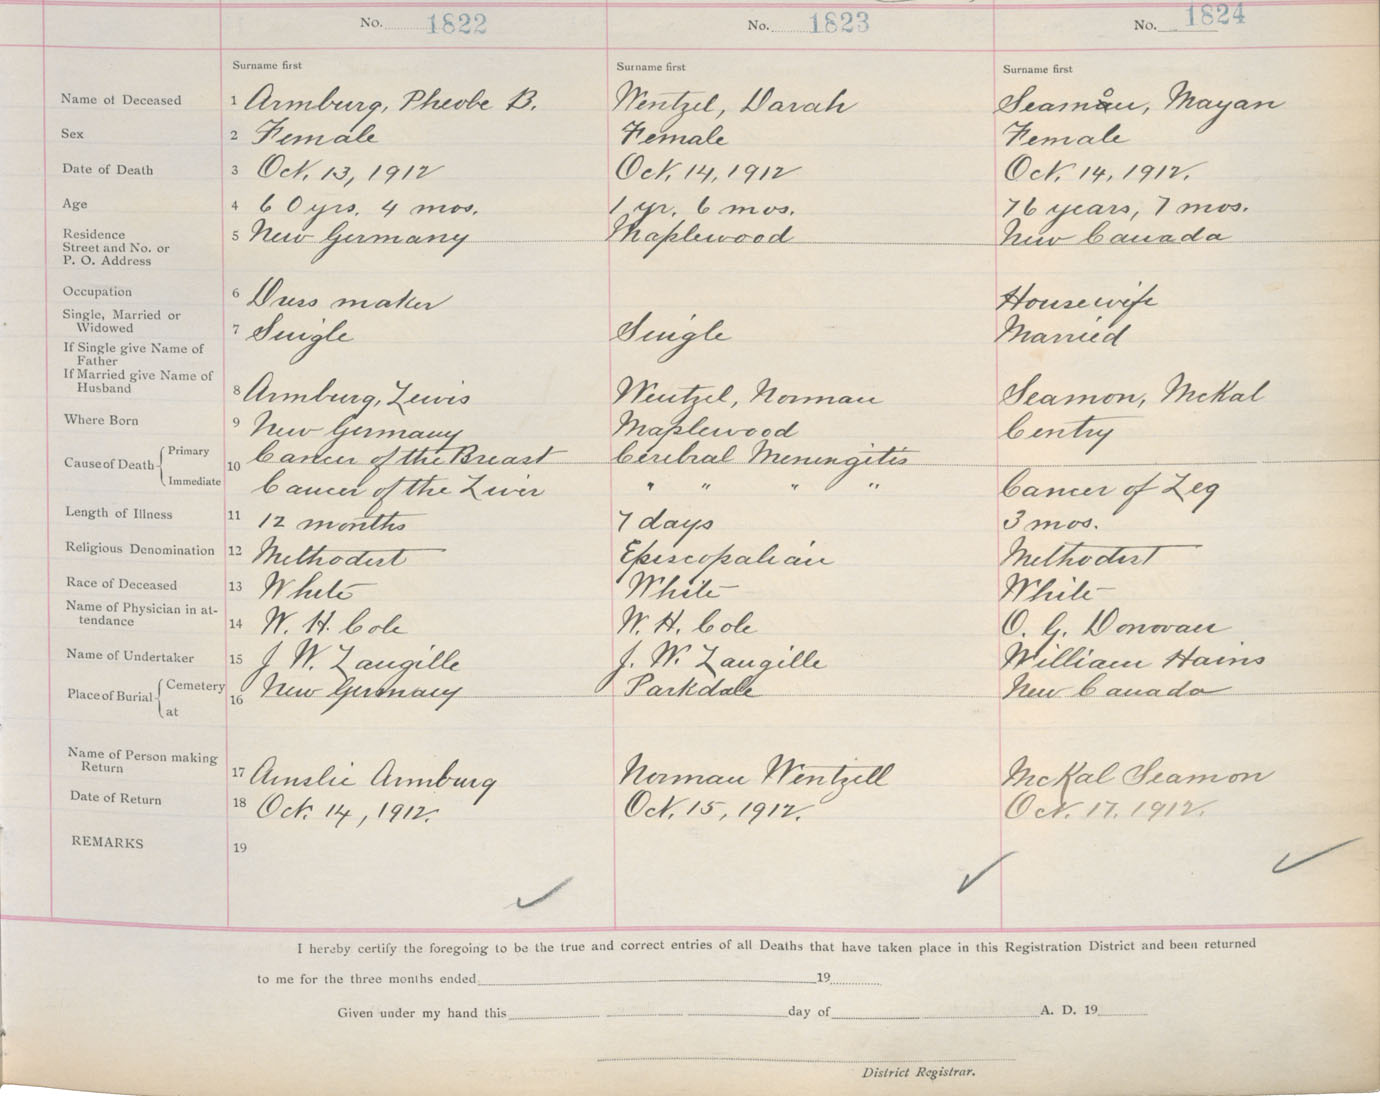 No. 1822 No. 1823 No. 1824
Surname first Surname first Surname first
Name of Deceased 1 Armburg, Pheobe B. Wentzel, Darah Seamon, Mayan
Sex 2 Female Female Female
Date of Death 3 Oct. 13, 1912 Oct. 14, 1912 Oct. 14, 1912.
Age 4 60 yrs. 4 mos. 1 yr. 6 mos. 76 years, 7 mos.
Residence
Street and No. or 5 New Germany Maplewood New Canada
P. O. Address
Occupation 6 Dress maker Housewife
Single, Married or
Widowed 7 Single Single Married
If Single give Name of
Father
If Married give Name of
Husband 8 Armburg, Lewis Wentzel, Norman Seamon, McKal
Where Born 9 New Germany Maplewood Centry
Cause of Death Primary 10 Cancer of the Breast Cerebral Meningitis
Immediate Cancer of the Liver " " " " Cancer of Leg
Length of Illness 11 12 months 7 days 3 mos.
Religious Denomination 12 Methodist Episcopalian Methodist
Race of Deceased 13 White White White
Name of Physician in at-
tendance 14 W. H. Cole W. H. Cole O. G. Donovan
Name of Undertaker 15 J. W. Zaugille J. W. Zaugille William Hains
Place of Burial Cemetery 16 New Germany Parkdale New Canada
at
Name of Person making
Return 17 Ainslie Armburg Norman Wentzell McKal Seamon
Date of Return 18 Oct. 14, 1912. Oct. 15, 1912. Oct. 17. 1912.
REMARKS 19
I hereby certify the foregoing to be the true and correct entries of all Deaths that have taken place in this Registration District and been returned
to me for the three months ended 19
Given under my hand this day of A. D. 19
District Registrar.